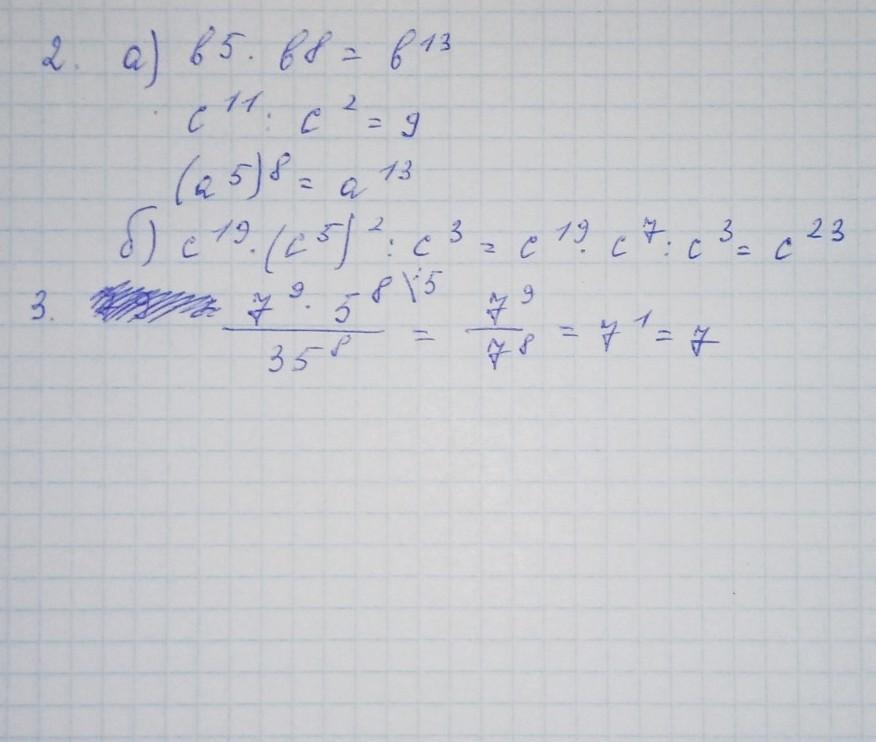 2. а) в5 · в8 = в¹³
с¹¹ : с² = 9
(а5)⁸ = а¹³
б) с¹⁹ · (с⁵)² : с³ = с¹⁹ · с⁷ : с³ = с²³
3. 7⁹ · 5⁸ \:5 / 35⁸ = 7⁹ / 7⁸ = 7¹ = 7